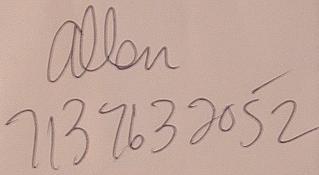 Allen
713 763 2052